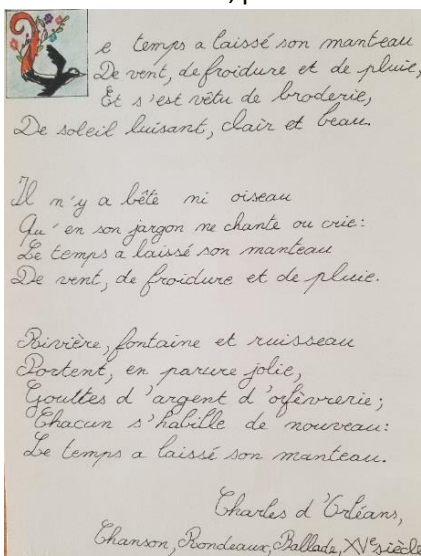 Le temps a laissé son manteau
De vent, de froidure et de pluie,
Et s'est vêtu de broderie,
De soleil luisant, clair et beau.
Il n'y a bête ni oiseau
Qu'en son jargon ne chante ou crie:
Le temps a laissé son manteau
De vent, de froidure et de pluie.
Rivière, fontaine et ruisseau
Portent, en parure jolie,
Gouttes d'argent d'orfèvrerie;
Chacun s'habille de nouveau:
Le temps a laissé son manteau.
Charles d'Orléans,
Chanson, Rondeaux, Ballade, XVe siècle